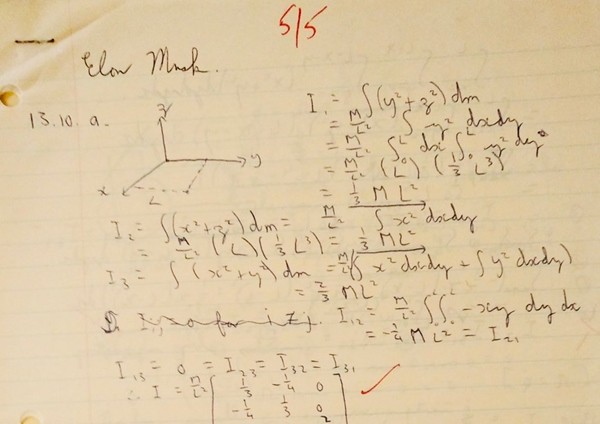 5/5
Elon Musk.
13.10. a.
z
y
x
L
I₁ = ∫(y²+z²) dm
= M/L² ∫ y² dxdy
= M/L² ∫₀ᴸ dx ∫₀ᴸ y² dy
= M/L² (L) (1/3 L³)
= 1/3 ML²
I₂ = ∫(x²+z²) dm = M/L² ∫ x² dxdy
= M/L² (L)(1/3 L³) = 1/3 ML²
I₃ = ∫(x²+y²) dm = M/L² (∫ x² dxdy + ∫ y² dxdy)
= 2/3 ML²
for i≠j. I₁₂ = M/L² ∫∫ -xy dy dx
= -1/4 ML² = I₂₁
I₁₃ = 0 = I₂₃ = I₃₂ = I₃₁
∴ I = M/L² [ 1/3 -1/4 0
-1/4 1/3 0
2